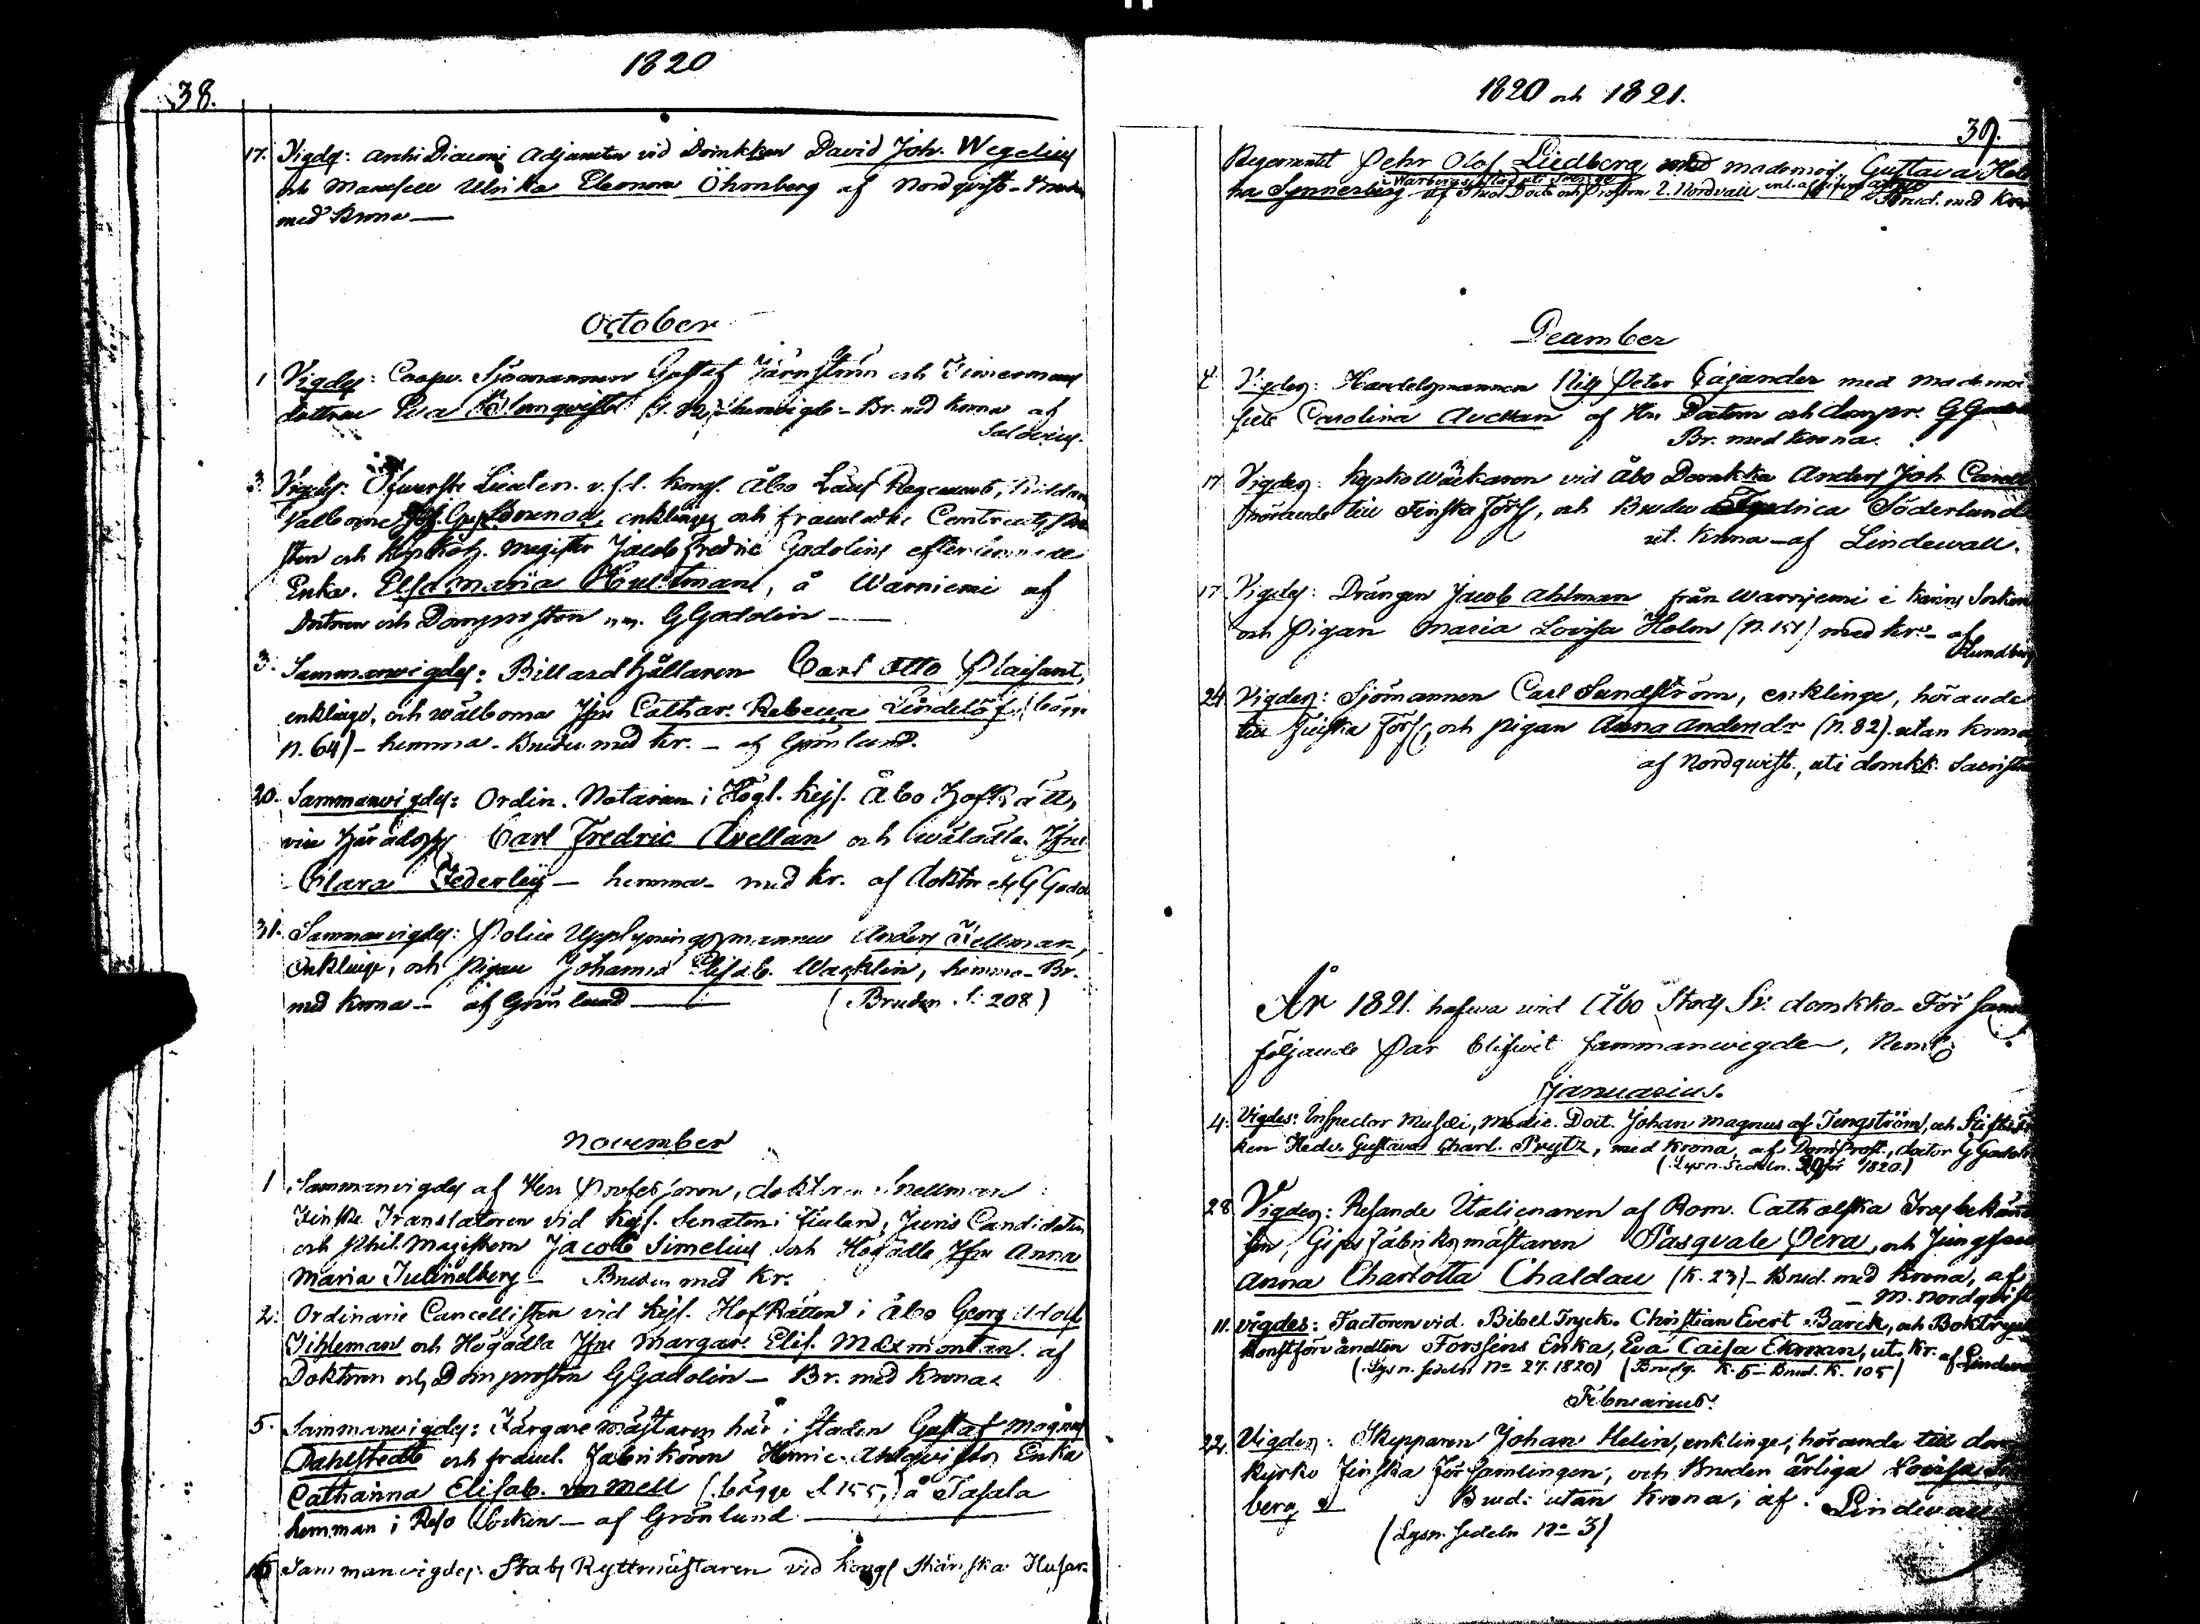 1820
38.
17. Vigdes: Archi Diaconi Adjuncten vid Domkkan David Joh. Wegelius
och Mamsell Ulrika Eleonora Öhmberg af Nordqvist - Bruden
med Krona
October
1 Vigdes: Sjömannen Gustaf Järnström och Timermans
dottren Eva Blomqvist hemvigde - Br. med krona af
Salovius.
3. Vigdes: Öfwerste Lieuten. v. f.d. Kongl. Åbo Läns Regemente, Riddaren
Välborne enklinge och framledne Contracts Pro
sten och Kyrkoh. Magister Jacob Fredric Gadolins efterlemnade
Enka. Elsa Maria Hultman, å Warniemi af
Doktorn och Domprosten m.m. G Gadolin
3. Sammanvigdes: Billardhållaren Carl Otto Plaisant,
enklinge, och wälborna Jfru Cathar. Rebecca Lindelöf (bägge
N. 64) - hemma - Bruden med kr. - af Grönlund.
20. Sammanvigdes: Ordin. Notarien i Högl. Kejs. Åbo HofRätt,
vice Häradsh. Carl Fredric Avellan och wälädla Jfru
Clara Federley - hemma - med kr. af doktor etc G Gado
31. Sammanvigdes: Police Upsyningsmannen Anders Tellman,
Enklinge, och pigan Johanna Elisab. Wacklin, hemma - Br.
med krona - af Grönlund (Bruden S. 208)
November
1 Sammanvigdes af Herr Professoren, doktoren Snellman
Finske Translatoren vid Kejs. Senaten i Finland, Juris Candidaten
och Phil. Magistern Jacob Simelius och Högädla Jfru Anna
Maria Bruden med kr.
2. Ordinarie Cancellisten vid Kejs. HofRätten i Åbo Georg Adolf
Tihleman och Högädla Jfru Margar. Elis. Maxmontan. af
Doktoren och Domprosten G Gadolin - Br. med Krona
5. Sammanvigdes: Färgaremästaren här i staden Gustaf Magnus
Dahlstedt och framl. Fabrikören Henric Ahlqvists Enka
Catharina Elisab. von Mell (bägge S 155,) å Tasala
hemman i Reso Socken - af Grönlund
16 Sammanvigdes: Stabs Ryttmästaren vid Kongl Skånska Husar-
1820 och 1821.
39.
Regementet Pehr Olof Liedberg med mademois. Gustava Hele
na Synnerberg i Warbergs Stad uti Sverige af Theol Doct. och Profess. Brud. med Kro
December
Vigdes: Handelsmannen Nils Peter Cajander med mademoi
selle Carolina Avellan af Hrr Doctorn och dompr. G Gado
Br. med krona.
17 Vigdes: KyrkoWäktaren vid Åbo Domkka Anders Joh
hörande till Finska Förs, och Bruden Fredrica Söderlund
ut. krona - af Lindewall.
17 Vigdes: Drängen Jacob Ahlman från Warnjemi i Karins Socken
och Pigan Maria Lovisa Holm (N. 151) med kr. - af
Lundberg
24 Vigdes: Sjömannen Carl Sundström, enklinge, hörande
till Finska Förs, och pigan Anna Andersdr (N. 82). utan krona
af Nordqwist., uti domkk. Sacristian
År 1821. hafwa wid Åbo Stads Sv. domkko-Församl
följande Par blifwit sammanwigde, Neml.
Januarius.
4. Vigdes: Inspector Musei, Medic. Doct. Johan Magnus af Tengström, och Stiftsfrö
ken Hedv. Gustava Charl. Prytz, med Krona, af DomProst., doctor G Gadol
(Lysn. Sedeln. 29 för 1820)
28 Vigdes: Resande Italienaren af Rom. Catholska Trosbekän
sen, Gips Fabriksmästaren Pasquale Pera, och Jungfrun
Anna Charlotta Chaldau (K. 23) - Brud. med krona, af
M. Nordqvist
11. Vigdes: Factoren vid Bibel Tryck. Christian Evert Barck, och Boktryck
konstförvandten Forssens Enka, Eva Caisa Ekman, ut. Kr. af Lindew
(Lysn. sedeln No 27. 1820) (Brudg. K. 5 - Brud. K. 105)
Februarius.
22. Vigdes: Skepparen Johan Helin, enklinge, hörande till dom
kyrko Finska Församlingen, och Bruden ärliga Lovisa
berg Brud. utan Krona, af. Lindewall
(Lysn. Sedeln No 3)